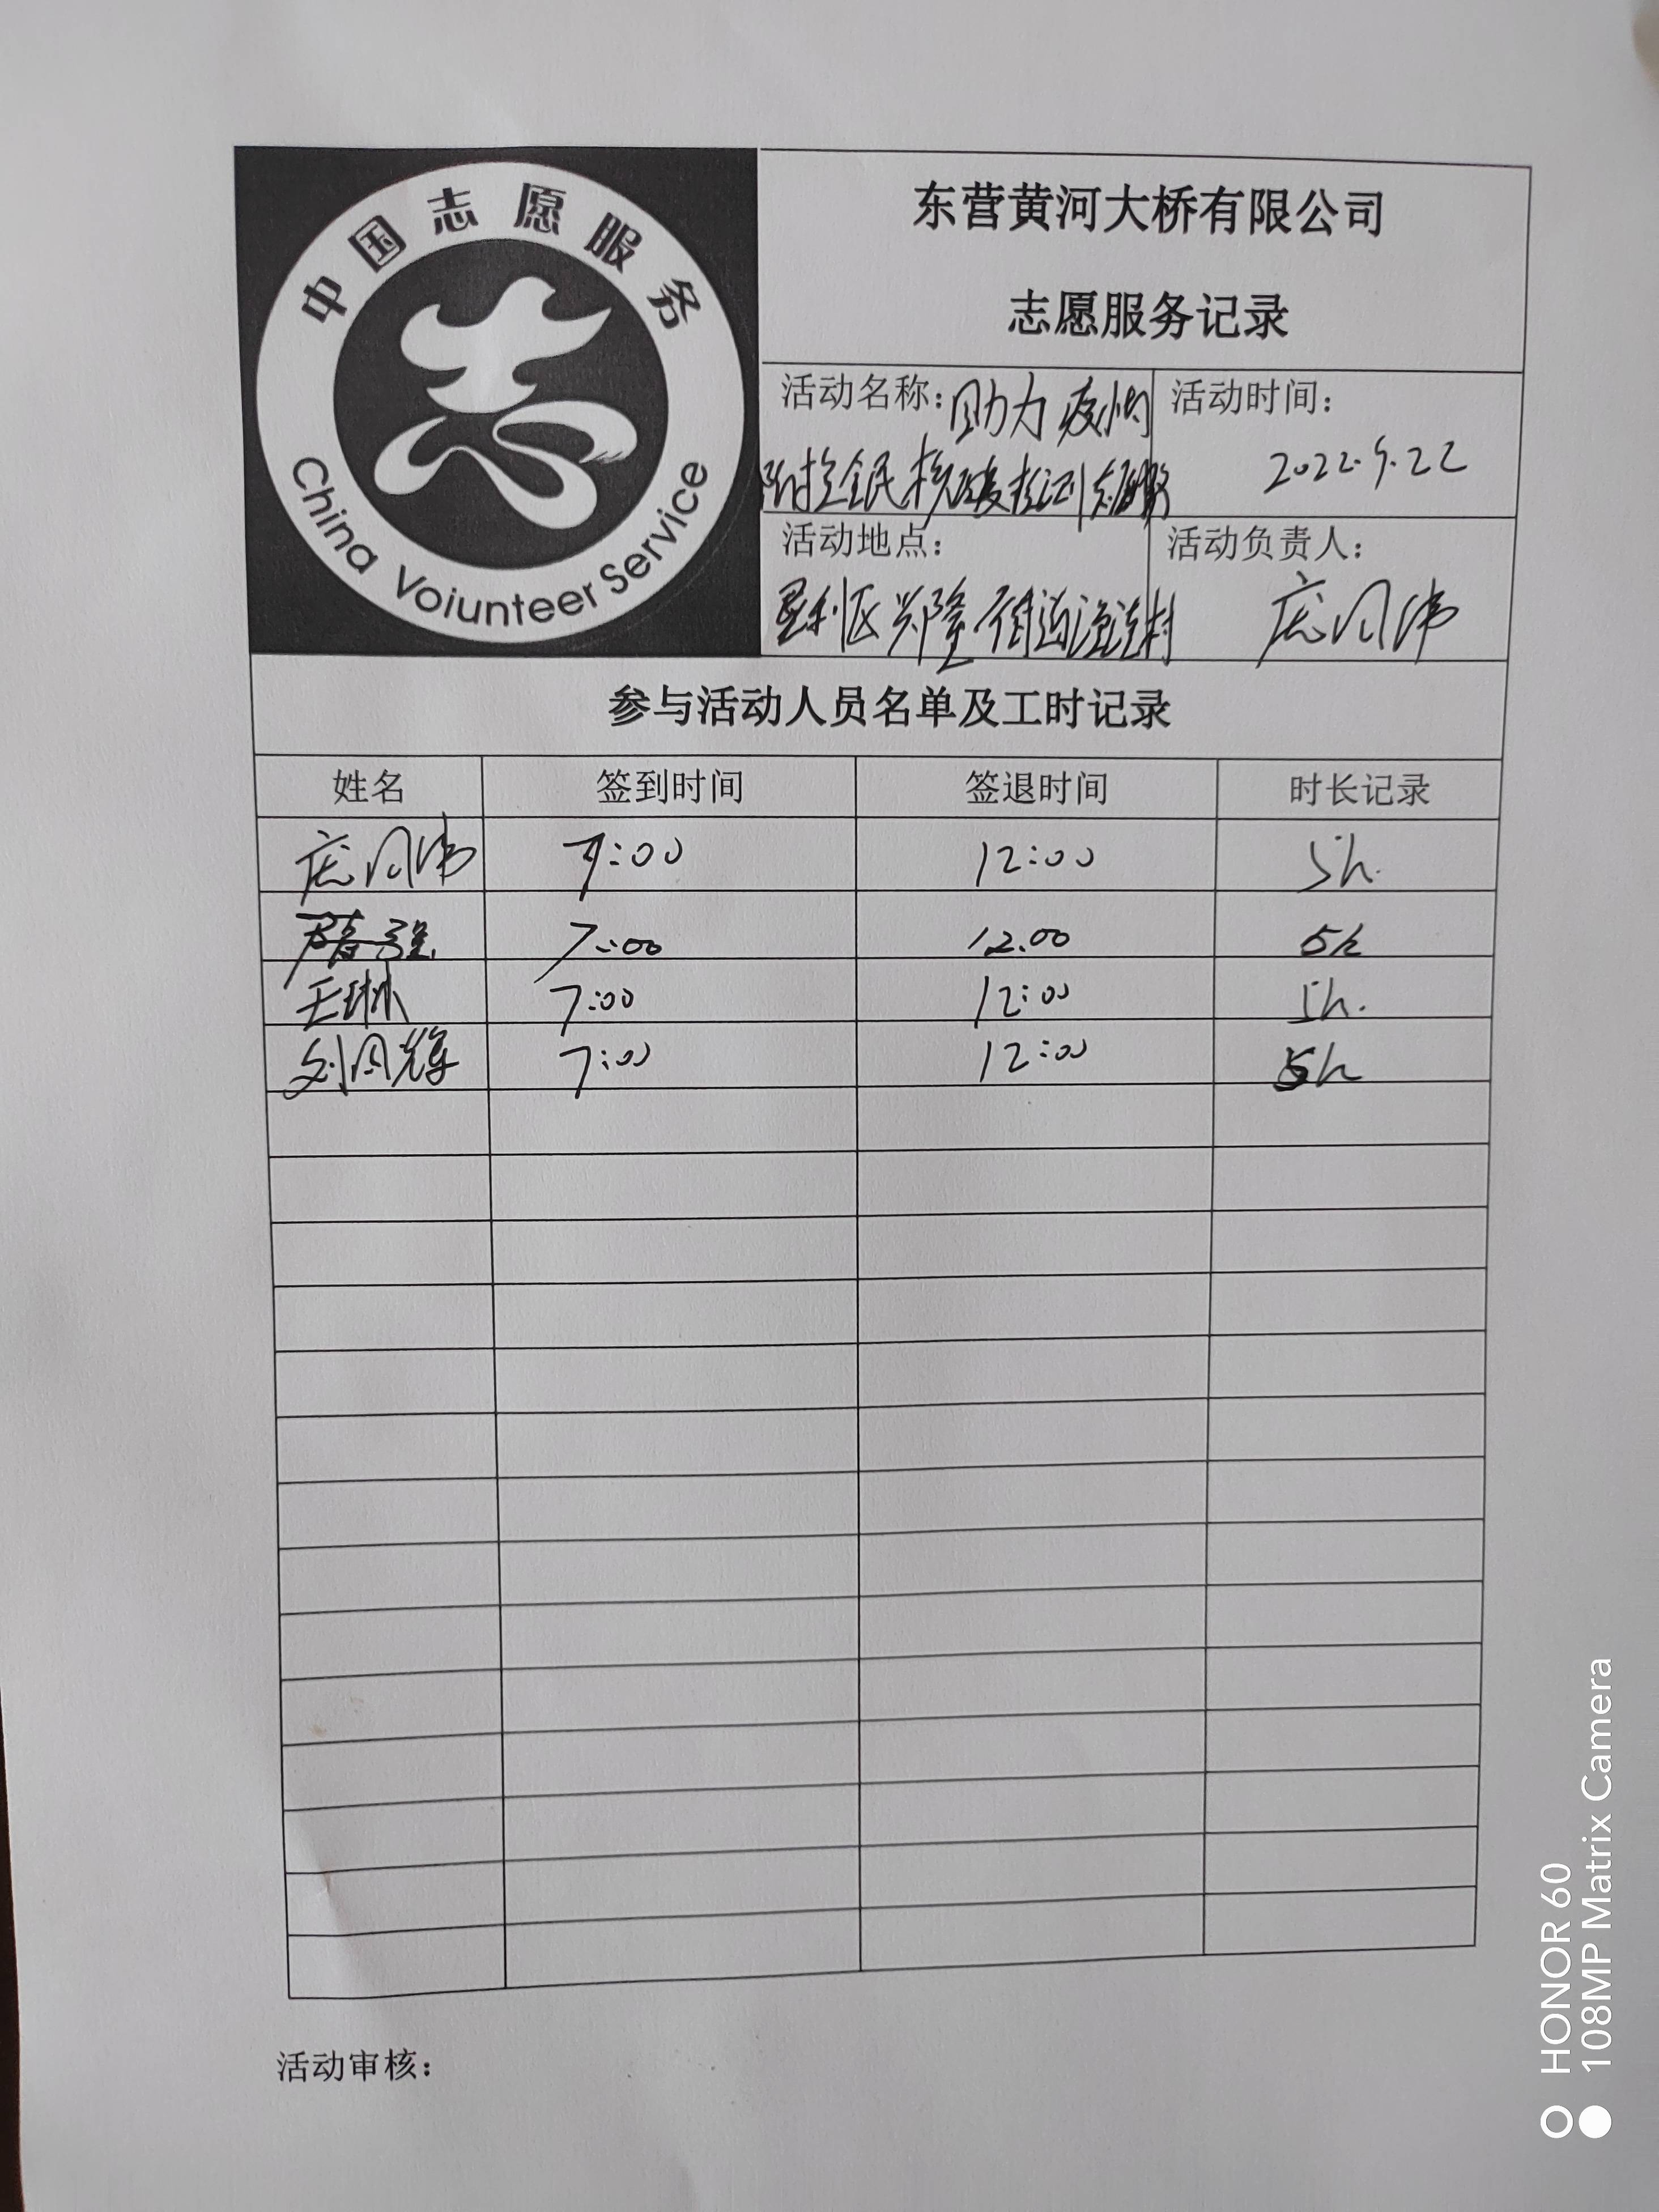 中国志愿服务
China Voiunteer Service
东营黄河大桥有限公司
志愿服务记录
活动名称:助力疫情
防控全民核酸检测志愿服务
活动时间:
2022.9.22
活动地点:
垦利区兴隆街道渔洼村
活动负责人:
庞风伟
参与活动人员名单及工时记录
姓名 签到时间 签退时间 时长记录
庞风伟 7:00 12:00 5h.
7:00 12.00 5h
王琳 7:00 12:00 5h.
刘风辉 7:00 12:00 5h
活动审核:
HONOR 60
108MP Matrix Camera